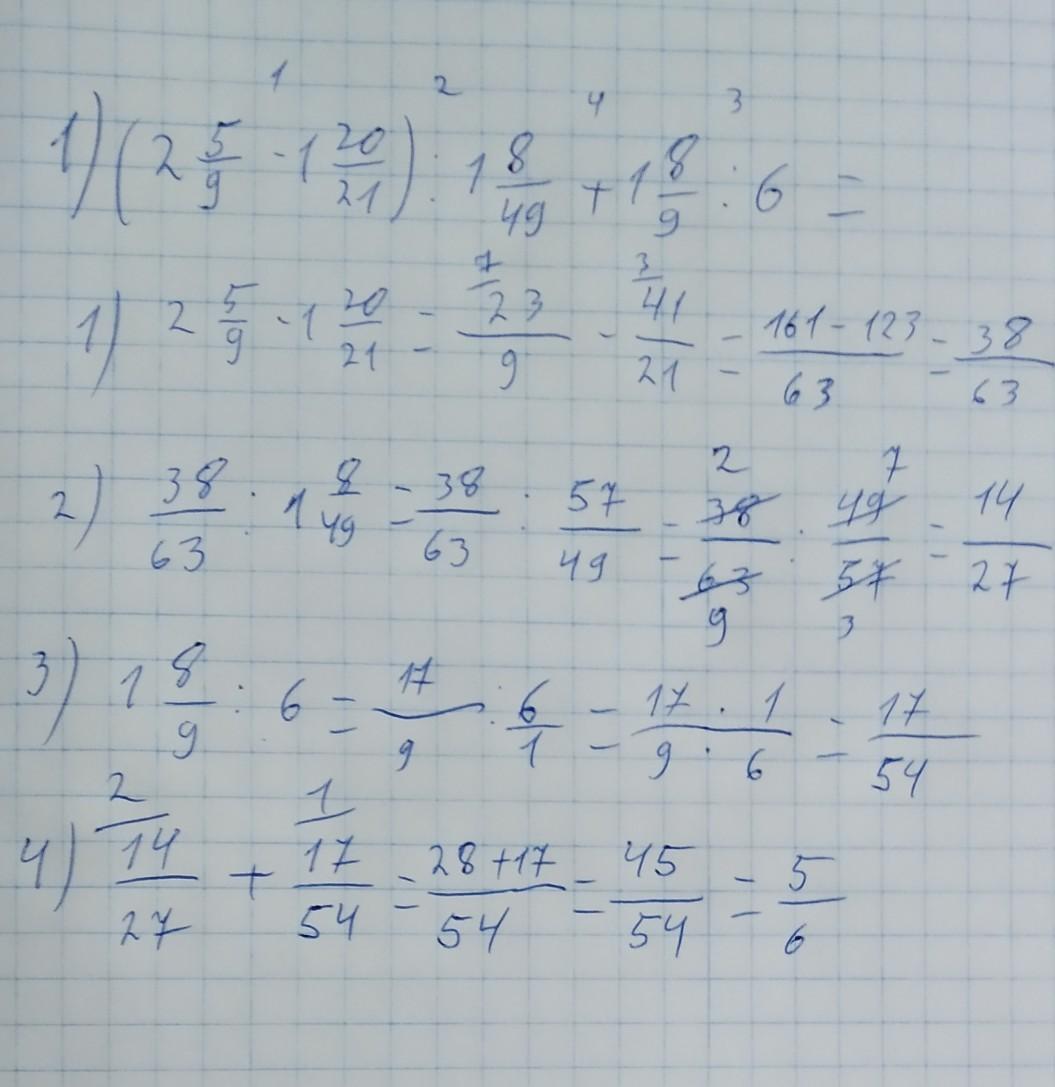 1 2 4 3
1) (2 5/9 - 1 20/21) : 1 8/49 + 1 8/9 : 6 =
7 3
1) 2 5/9 - 1 20/21 = 23/9 - 41/21 = 161-123/63 = 38/63
2 7
2) 38/63 : 1 8/49 = 38/63 : 57/49 = 38/63 · 49/57 = 14/27
9 3
3) 1 8/9 : 6 = 17/9 : 6/1 = 17 · 1/9 · 6 = 17/54
2 1
4) 14/27 + 17/54 = 28+17/54 = 45/54 = 5/6